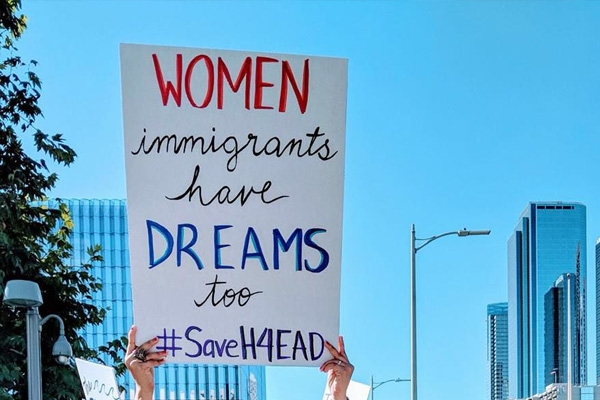 WOMEN
immigrants
have
DREAMS
too
#SaveH4EAD